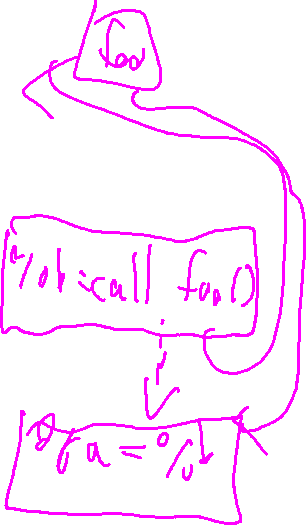 foo
%b = call foo()
%a = %b